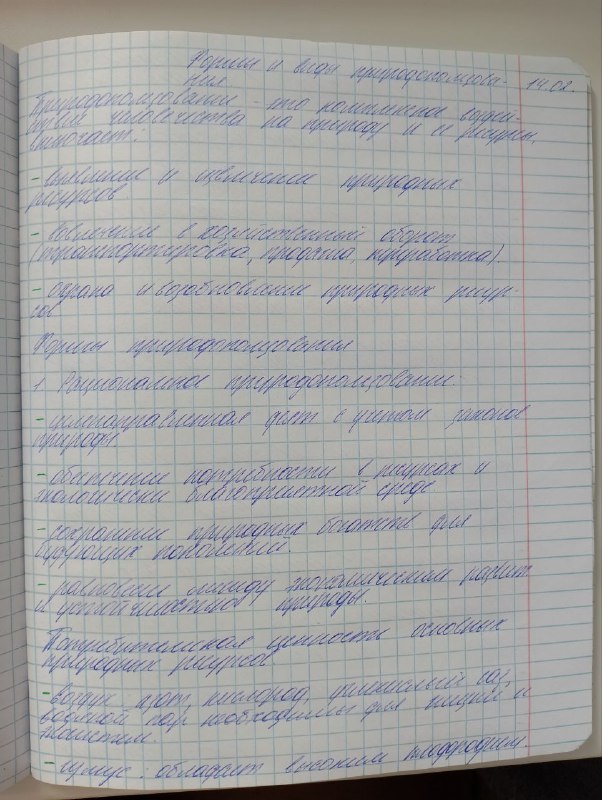 Формы и виды природопользова-
ния 14.02.
Природопользование - это комплексное воздей-
ствие человечества на природу и её ресурсы.
Включает:
- выявление и извлечение природных
ресурсов
- вовлечение в хозяйственный оборот
(транспортировка, продажа, переработка).
- охрана и возобновление природных ресур-
сов
Формы природопользования
1. Рациональное природопользование
- целенаправленная деят с учётом законов
природы.
- обеспечение потребности в ресурсах и
экологически благоприятной среде
- сохранение природных богатств для
будующих поколений
- равновесие между экономическим развит
и устойчивостью природы.
Потребительская ценность основных
природных ресурсов
- воздух азот, кислород, углекислый газ,
водяной пар необходимы для жизни и
экосистем.
- гумус. обладает высоким плодородием.